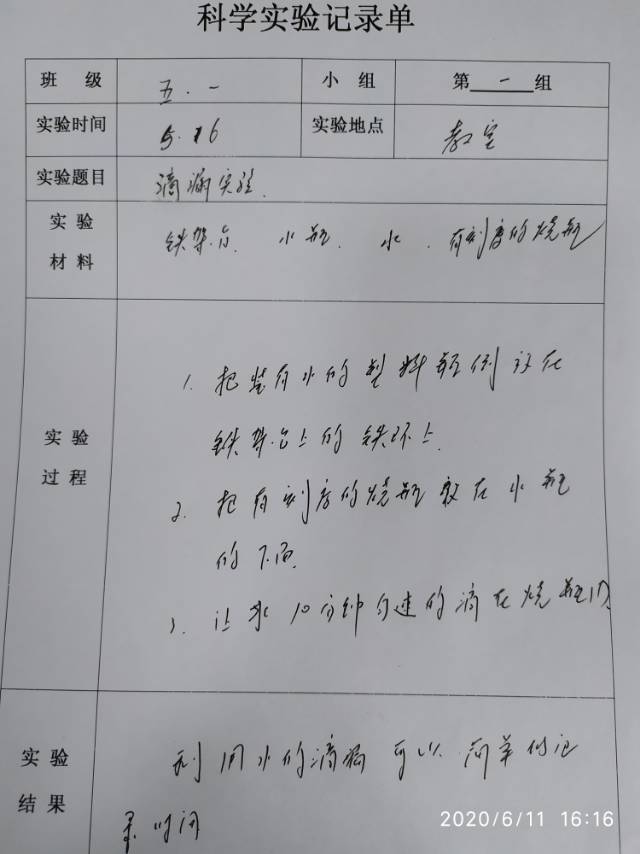 科学实验记录单
班 级 五.一 小 组 第 一 组
实验时间 5.16 实验地点 教室
实验题目 滴漏实验.
实 验
材 料
铁架台. 水瓶. 水. 有刻度的烧瓶
实 验
过 程
1. 把装有水的塑料瓶倒放在
铁架台上的铁环上.
2. 把有刻度的烧瓶放在水瓶
的下面.
3. 让水10分钟匀速的滴在烧瓶内
实 验
结 果
利用水的滴漏可以简单的记
录时间
2020/6/11 16:16